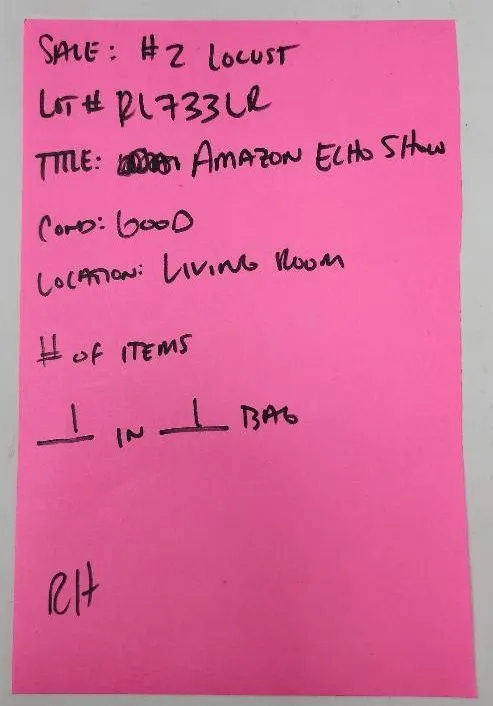 SALE: #2 LOCUST
LOT# RL733LR
TITLE: AMAZON ECHO SHOW
COND: GOOD
LOCATION: LIVING ROOM
# OF ITEMS
1 IN 1 BAG
RH